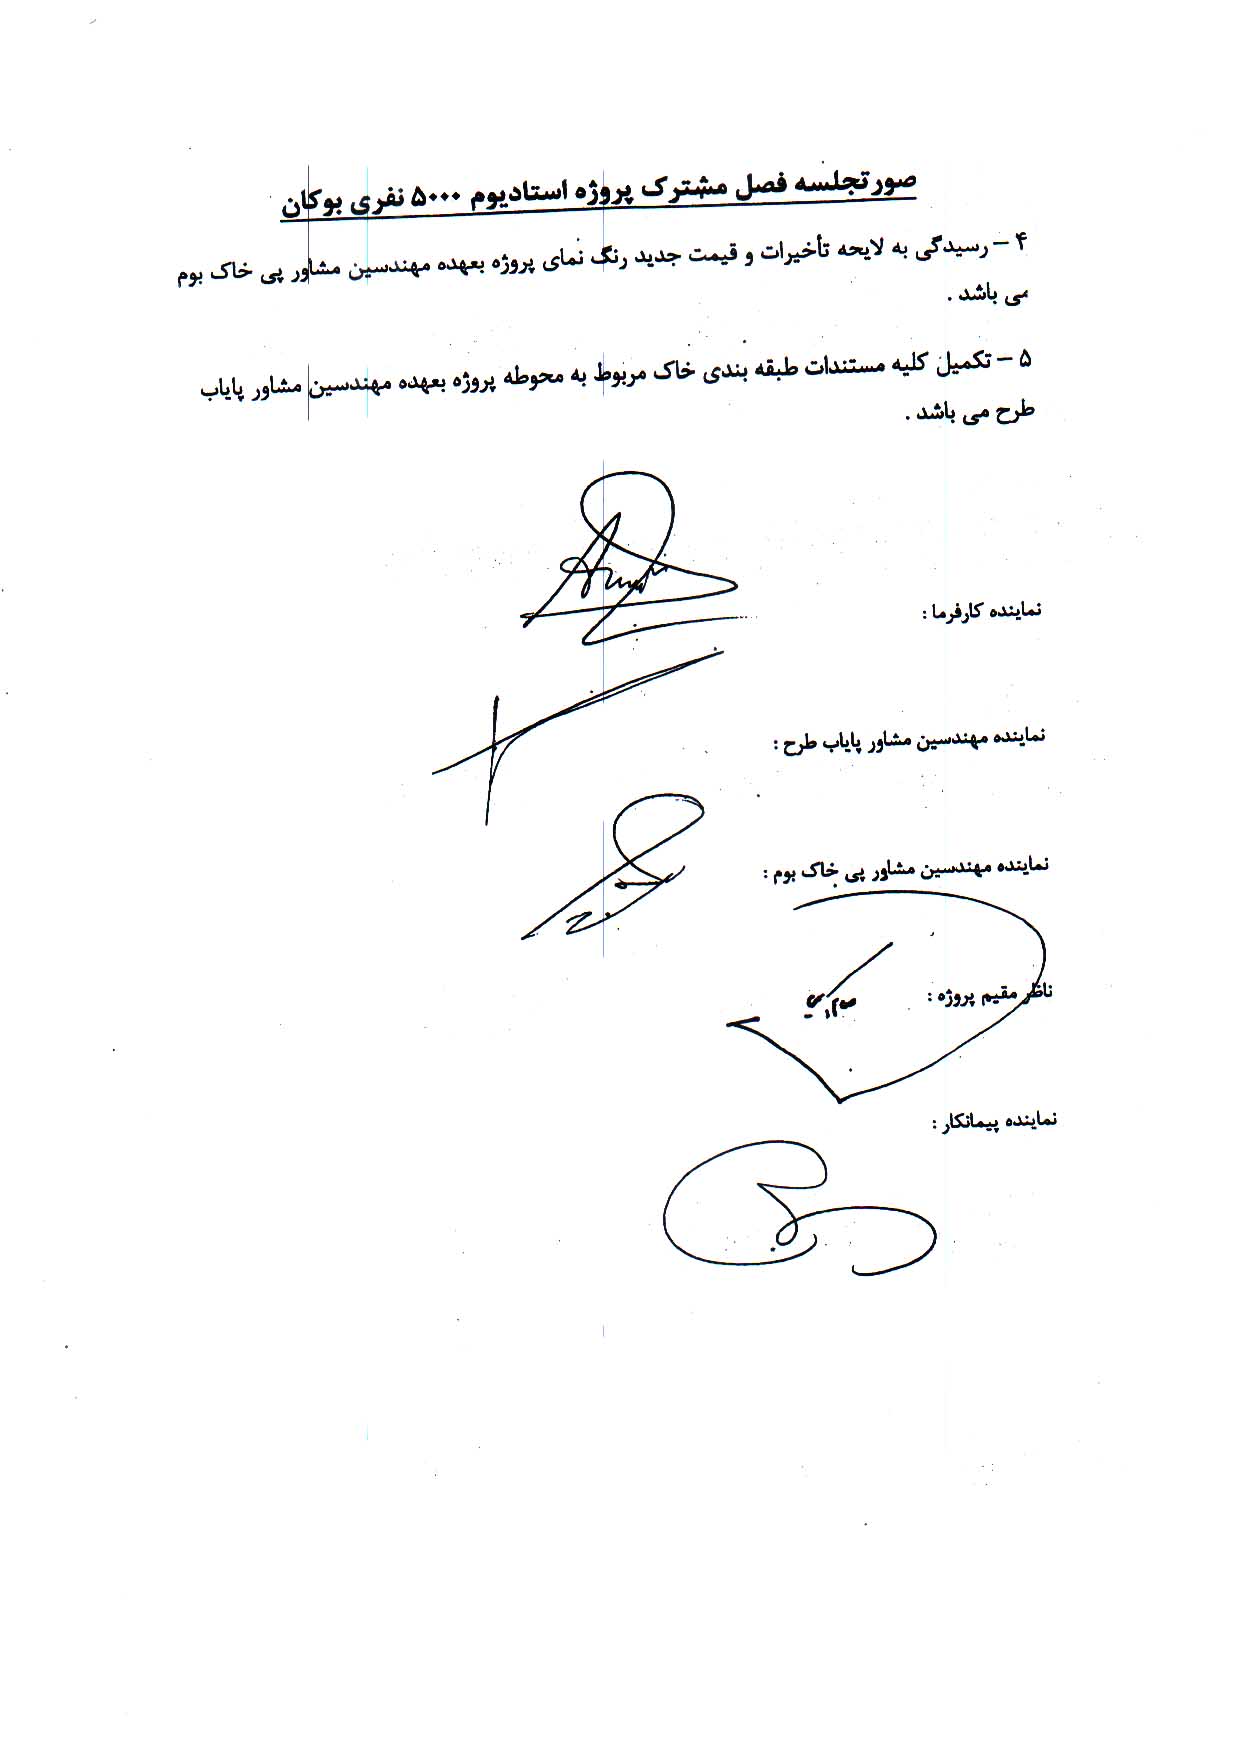 صورتجلسه فصل مشترک پروژه استادیوم ۵۰۰۰ نفری بوکان
۴ – رسیدگی به لایحه تأخیرات و قیمت جدید رنگ نمای پروژه بعهده مهندسین مشاور پی خاک بوم
می باشد .
۵ – تکمیل کلیه مستندات طبقه بندی خاک مربوط به محوطه پروژه بعهده مهندسین مشاور پایاب
طرح می باشد .
نماینده کارفرما :
نماینده مهندسین مشاور پایاب طرح :
نماینده مهندسین مشاور پی خاک بوم :
ناظر مقیم پروژه :
نماینده پیمانکار :